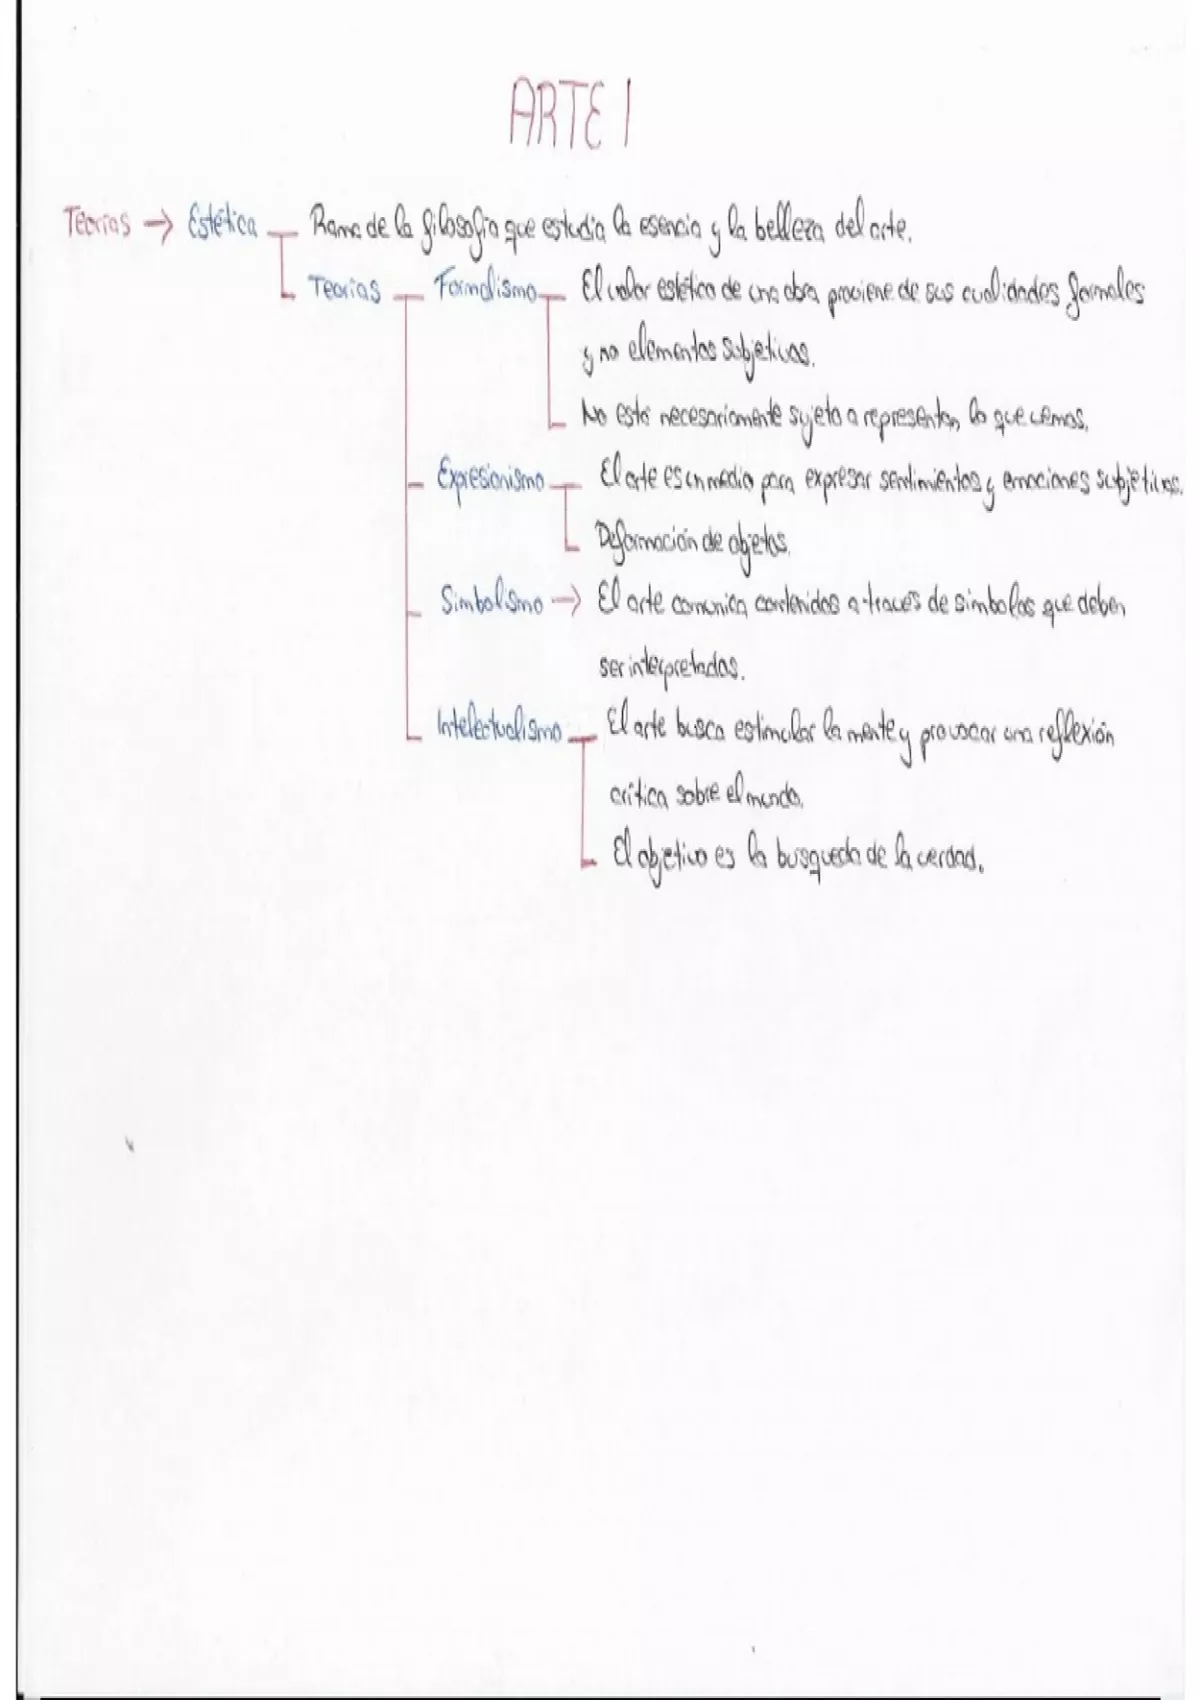 ARTE 1
Teorías → Estética Rama de la filosofía que estudia la esencia y la belleza del arte.
Teorías Formalismo El valor estético de una obra proviene de sus cualidades formales
y no elementos subjetivos.
No está necesariamente sujeto a representar lo que vemos.
Expresionismo El arte es un medio para expresar sentimientos y emociones subjetivas.
Deformación de objetos.
Simbolismo → El arte comunica contenidos a través de simbolos que deben
ser interpretados.
Intelectualismo El arte busca estimular la mente y provocar una reflexión
crítica sobre el mundo.
El objetivo es la busqueda de la verdad.